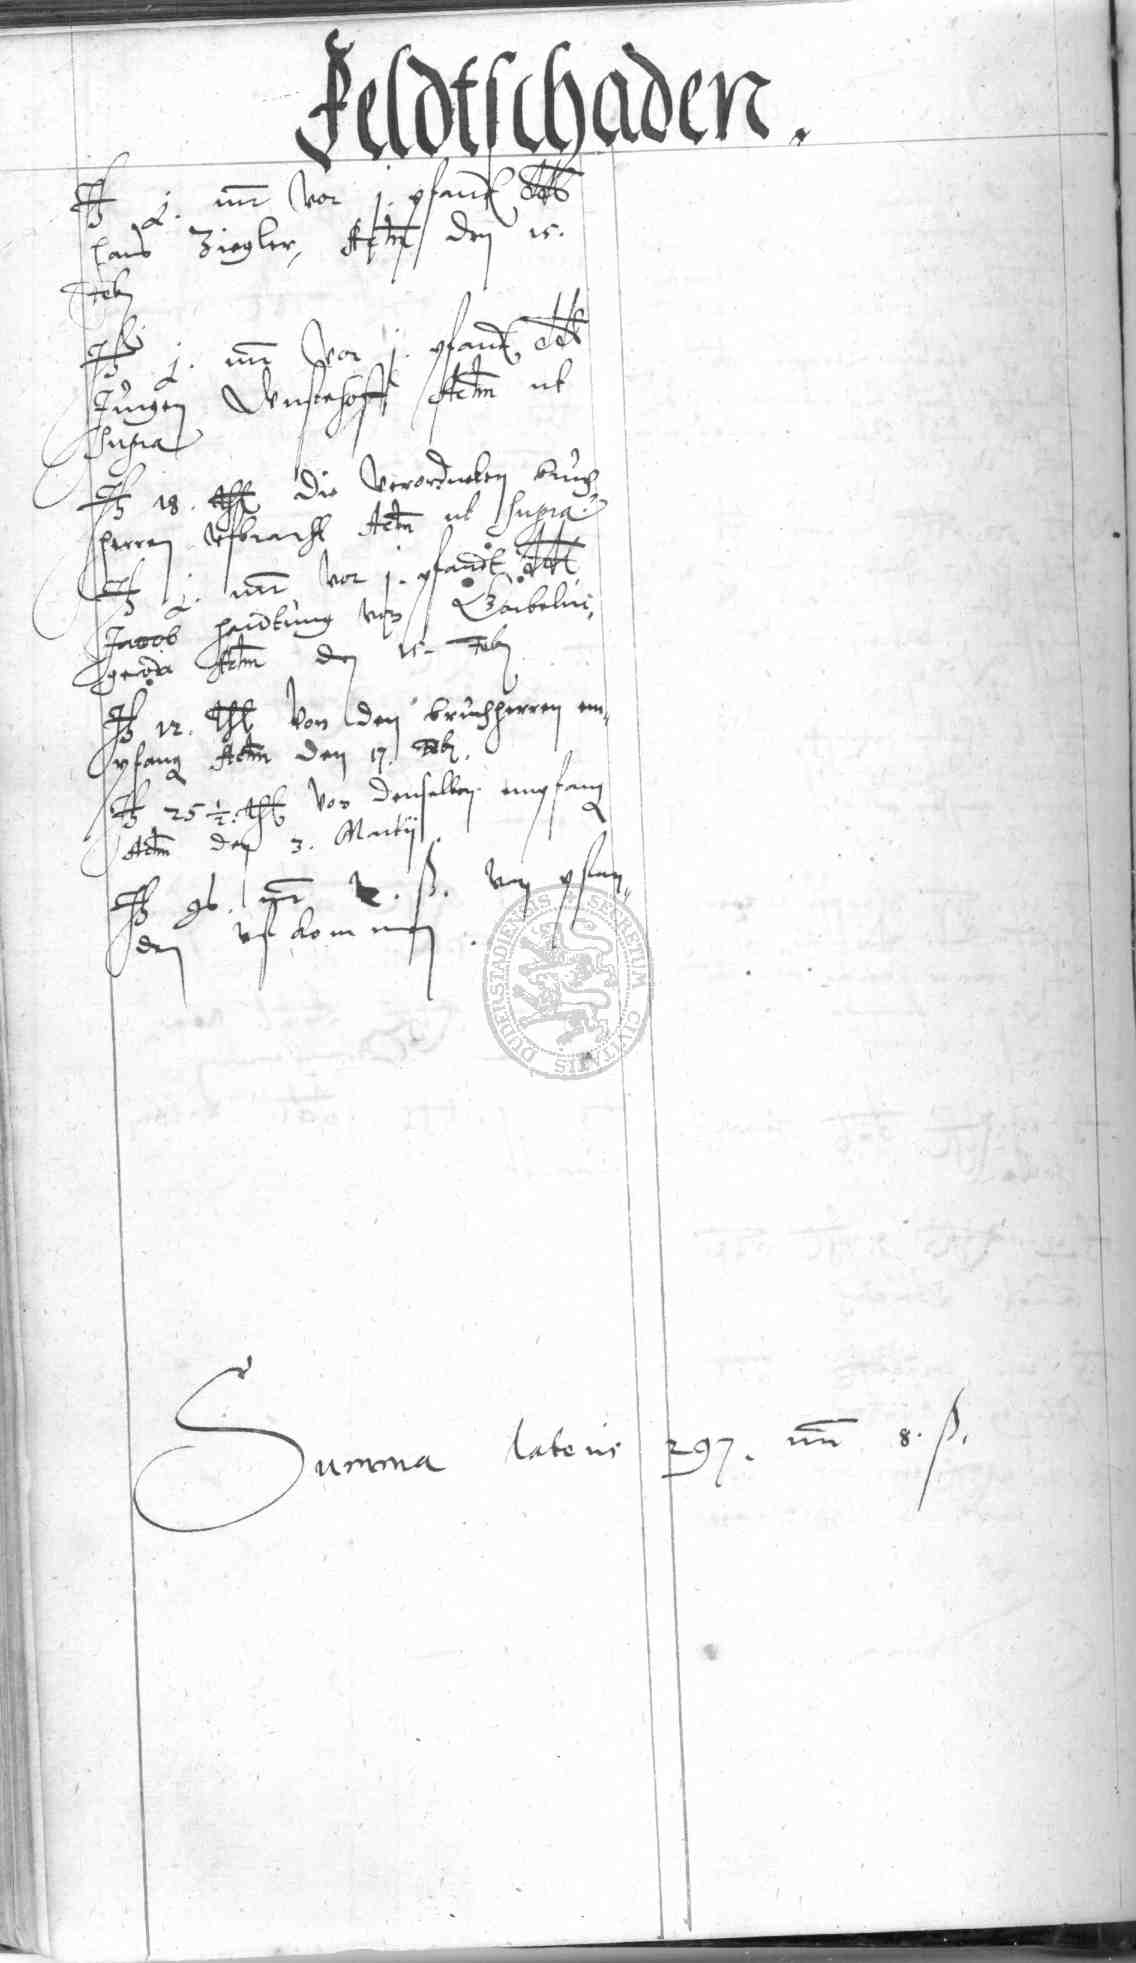 Feldtschaden.
j. mr vor j. pfandt dedit
Hans Ziegler, Actum den 15.
Feb
j. mr vor j. pfandt dedit
Jurgen Actum ut
supra
18. thl die verordneten bruch
herren Actum ut supra
j. mr vor j. pfandt dedit
Jacob von
geroda Actum den 15. Feb
12. thl von den bruchherren em,
pfang Actum den 17. Feb.
25 ½. thl von denselben empfang
Actum den 3. Martij
96. mr ß. von pfan,
den ufkommen.
SECRETUM CIVITATIS DUDERSTADIENSIS
Summa lateris 297. mr 8. ß.